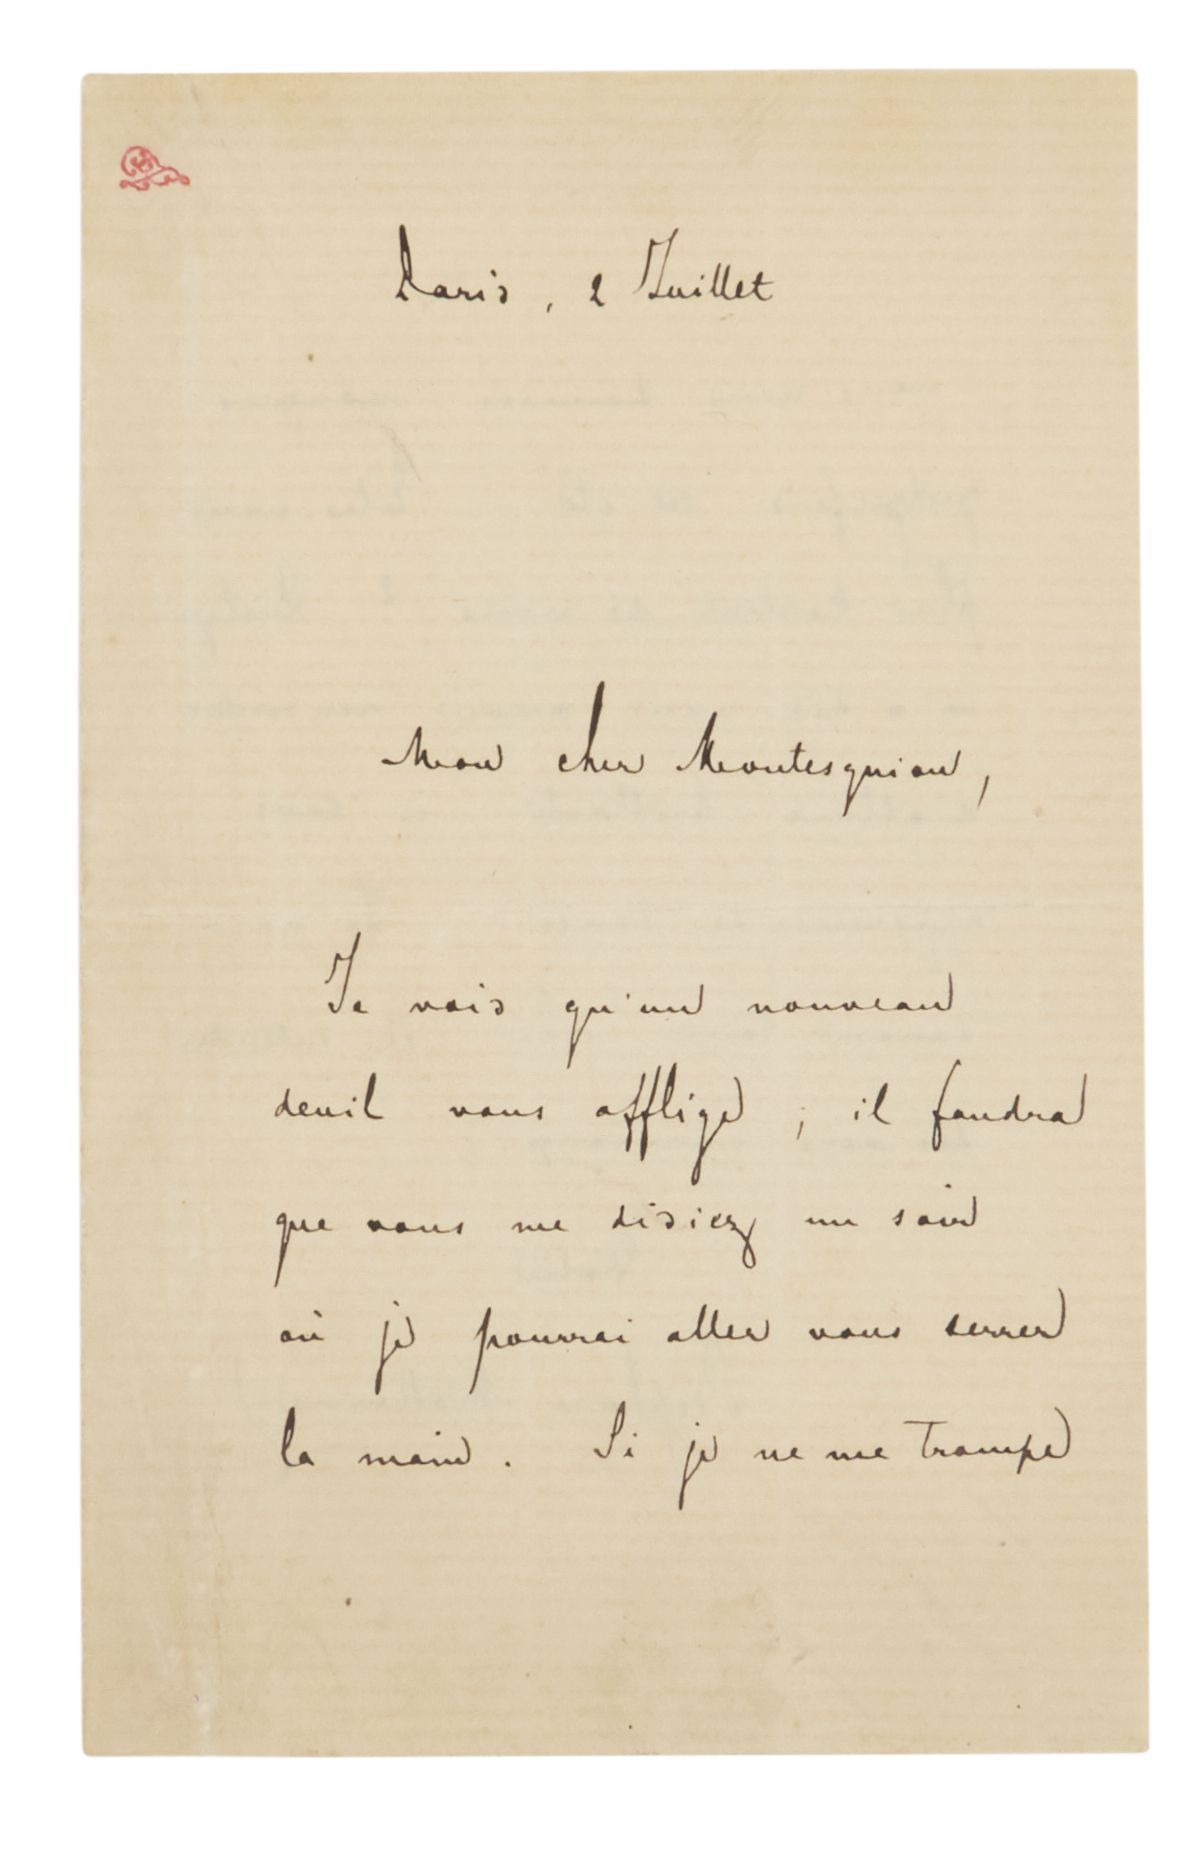 Paris, 2 Juillet
Mon cher Montesquiou,
Je vois qu'un nouveau
deuil vous afflige ; il faudra
que vous me disiez un soir
où je pourrai aller vous serrer
la main. Si je ne me trompe